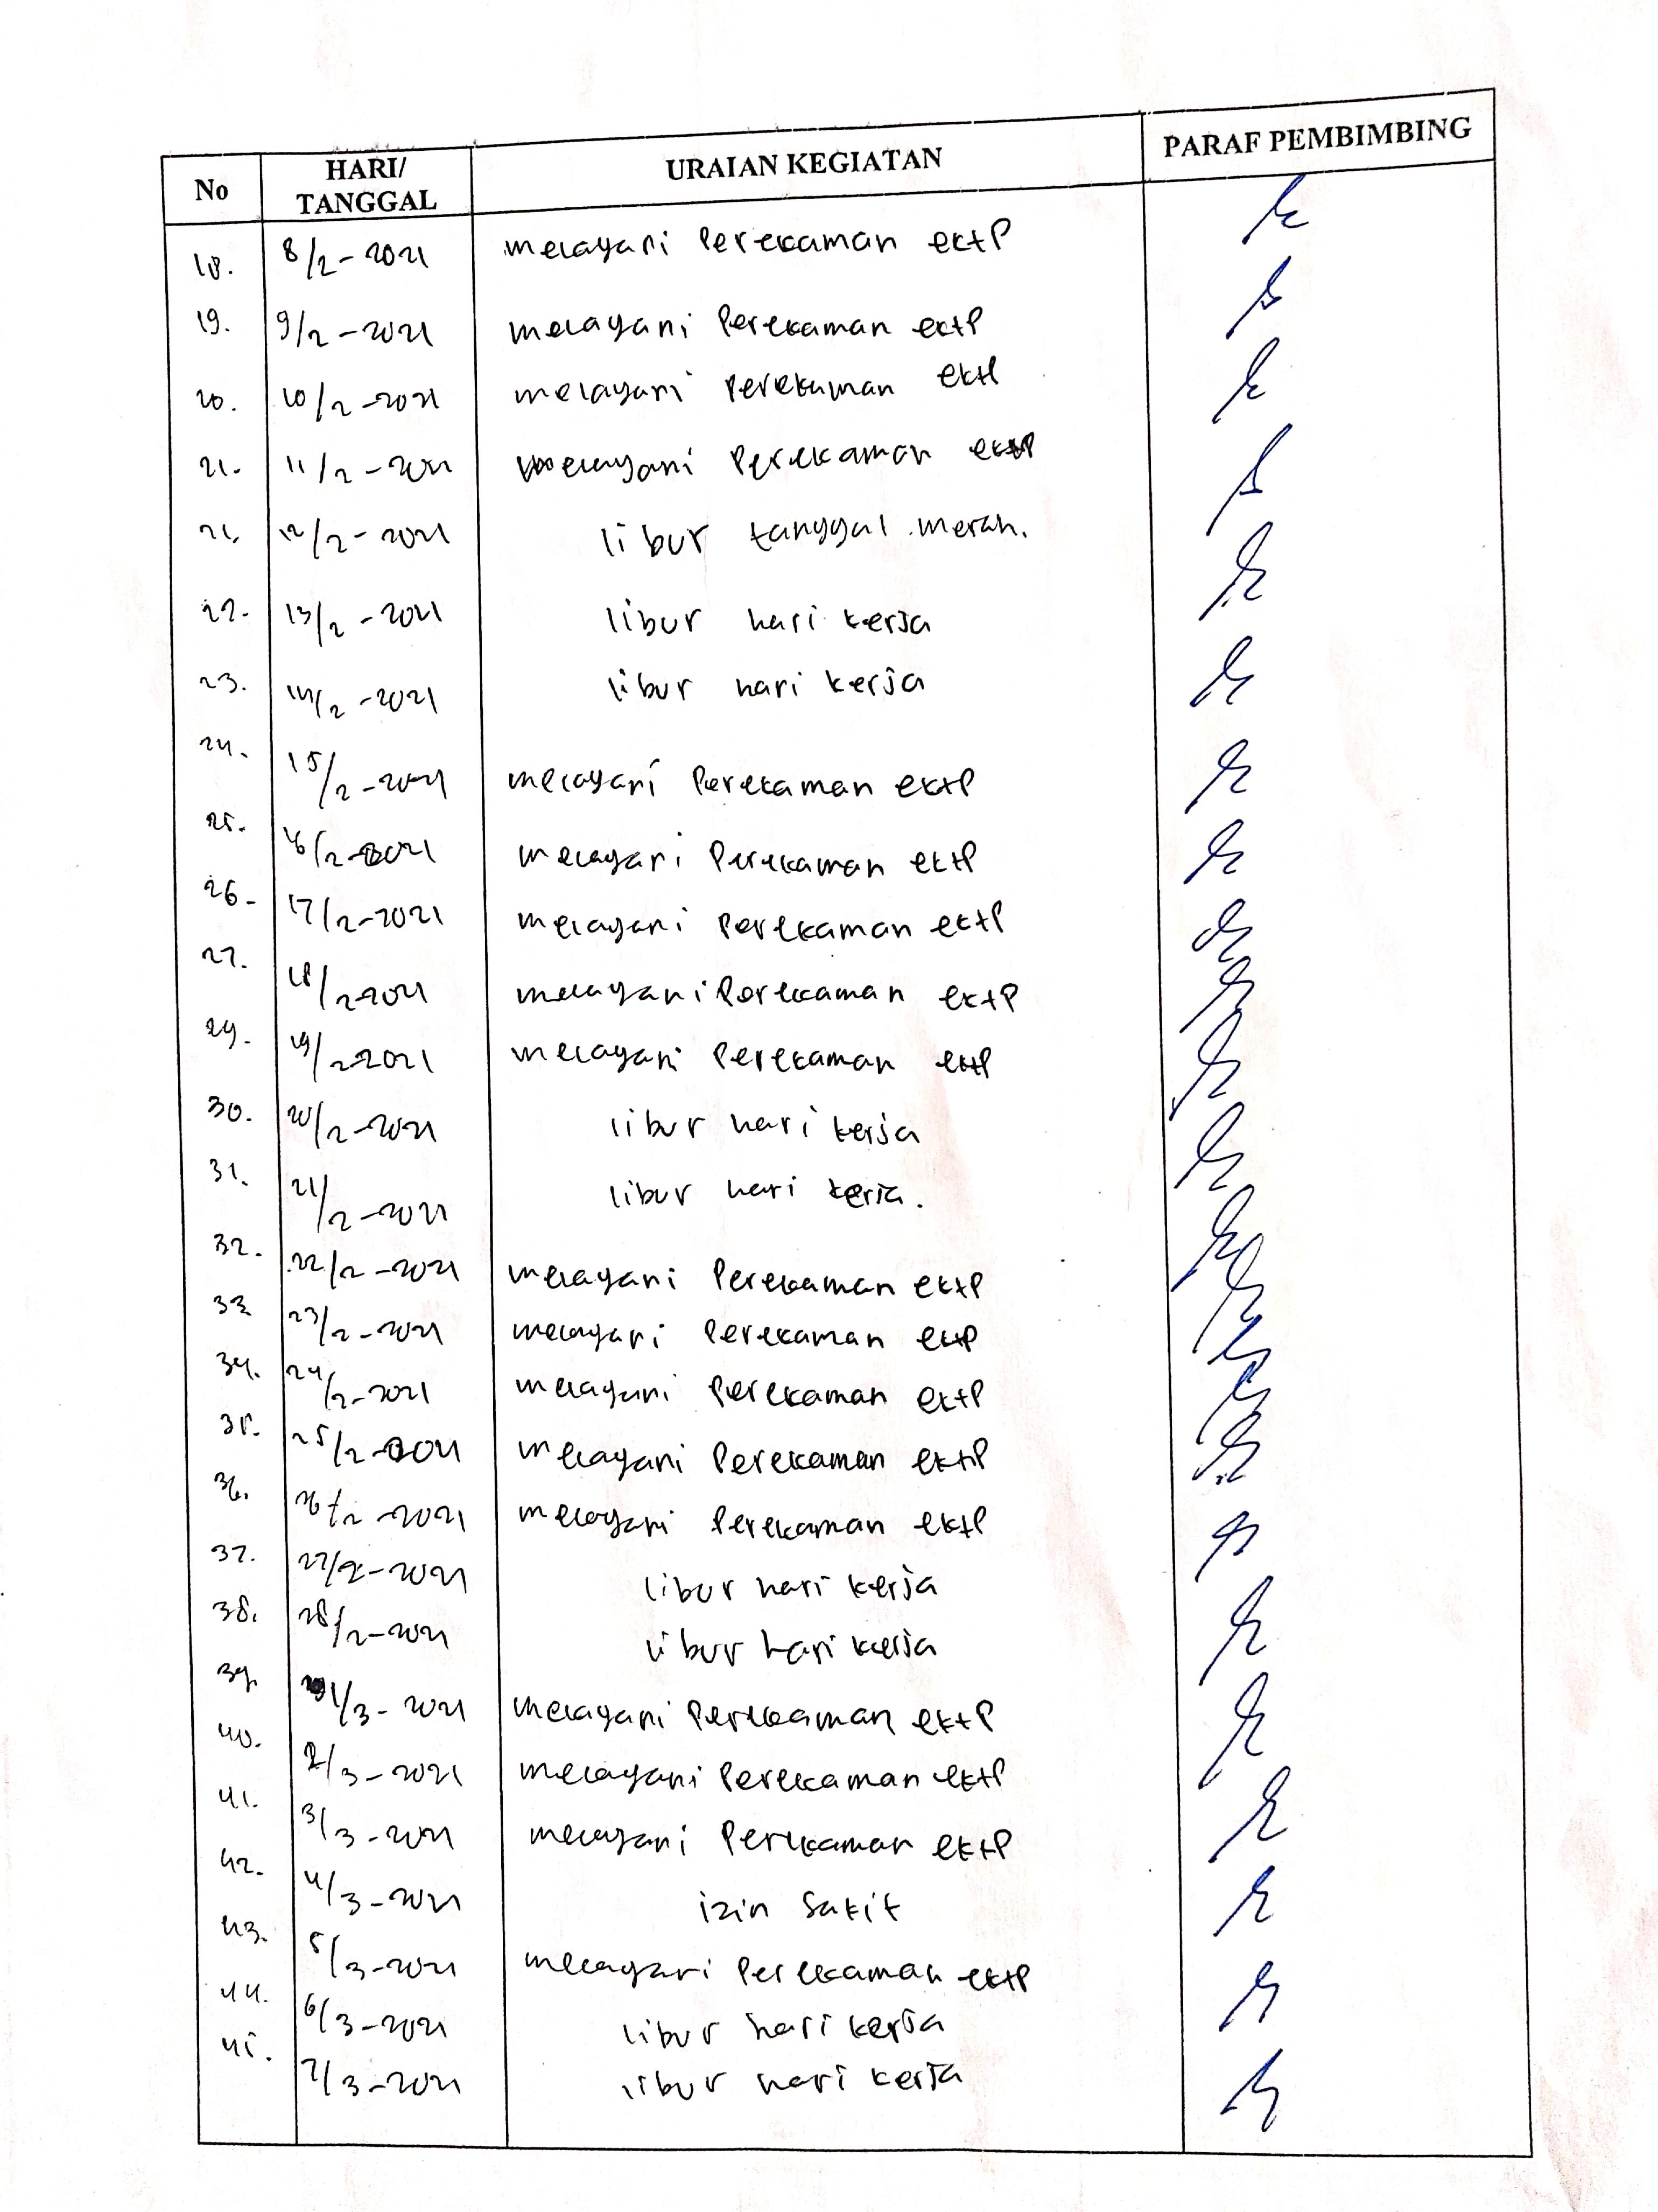 No HARI/ TANGGAL URAIAN KEGIATAN PARAF PEMBIMBING
18. 8/2-2021 melayani Perekaman ektP
19. 9/2-2021 melayani Perekaman ektP
20. 10/2-2021 melayani Perekaman ektP
21. 11/2-2021 melayani Perekaman ektP
21. 12/2-2021 libur tanggal merah.
22. 13/2-2021 libur hari kerja
23. 14/2-2021 libur hari kerja
24. 15/2-2021 melayani Perekaman ektP
25. 16/2-2021 melayani Perekaman ektP
26- 17/2-2021 melayani Perekaman ektP
27. 18/2-2021 melayani Perekaman ektP
29. 19/2-2021 melayani Perekaman ektP
30. 20/2-2021 libur hari kerja
31. 21/2-2021 libur hari kerja.
32. 22/2-2021 melayani Perekaman ektP
33 23/2-2021 melayani Perekaman ektP
34. 24/2-2021 melayani Perekaman ektP
35. 25/2-2021 melayani Perekaman ektP
36. 26/2-2021 melayani Perekaman ektP
37. 27/2-2021 libur hari kerja
38. 28/2-2021 libur hari kerja
39. 1/3-2021 melayani Perekaman ektP
40. 2/3-2021 melayani Perekaman ektP
41. 3/3-2021 melayani Perekaman ektP
42. 4/3-2021 izin Sakit
43. 5/3-2021 melayani Perekaman ektP
44. 6/3-2021 libur hari kerja
45. 7/3-2021 libur hari kerja